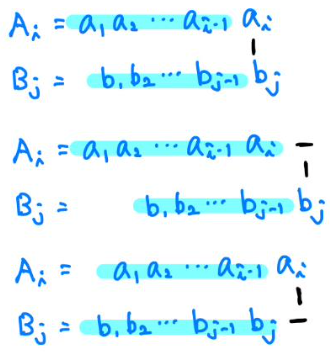 Aᵢ = a₁ a₂ ⋯ aᵢ₋₁ aᵢ
Bⱼ = b₁ b₂ ⋯ bⱼ₋₁ bⱼ
Aᵢ = a₁ a₂ ⋯ aᵢ₋₁ aᵢ –
Bⱼ = b₁ b₂ ⋯ bⱼ₋₁ bⱼ
Aᵢ = a₁ a₂ ⋯ aᵢ₋₁ aᵢ
Bⱼ = b₁ b₂ ⋯ bⱼ₋₁ bⱼ –